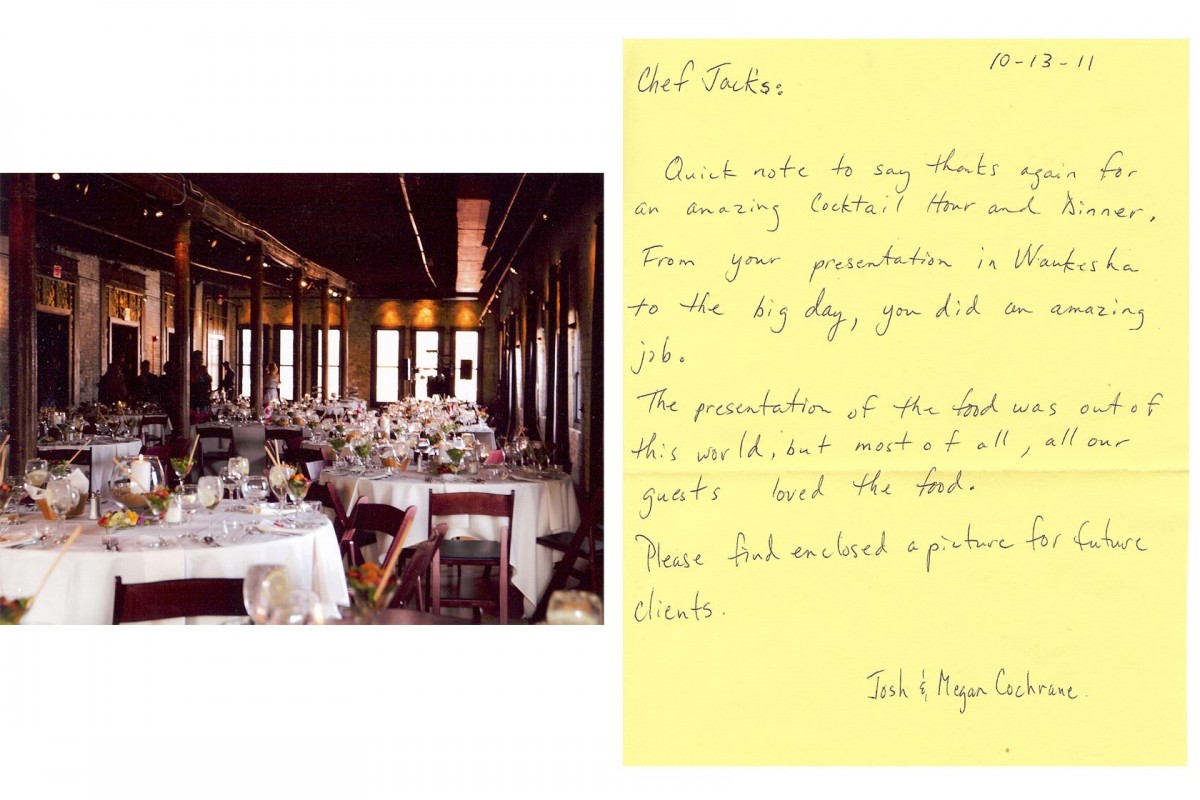 10-13-11
Chef Jack's:
Quick note to say thanks again for
an amazing Cocktail Hour and Dinner.
From your presentation in Waukesha
to the big day, you did an amazing
job.
The presentation of the food was out of
this world, but most of all, all our
guests loved the food.
Please find enclosed a picture for future
clients.
Josh & Megan Cochrane.